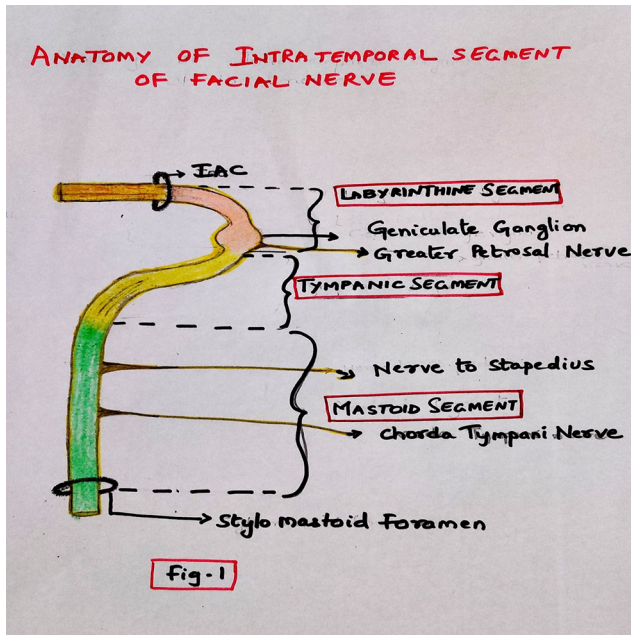 ANATOMY OF INTRATEMPORAL SEGMENT
OF FACIAL NERVE
IAC
LABYRINTHINE SEGMENT
Geniculate Ganglion
Greater Petrosal Nerve
TYMPANIC SEGMENT
Nerve to Stapedius
MASTOID SEGMENT
Chorda Tympani Nerve
Stylo mastoid Foramen
Fig-1